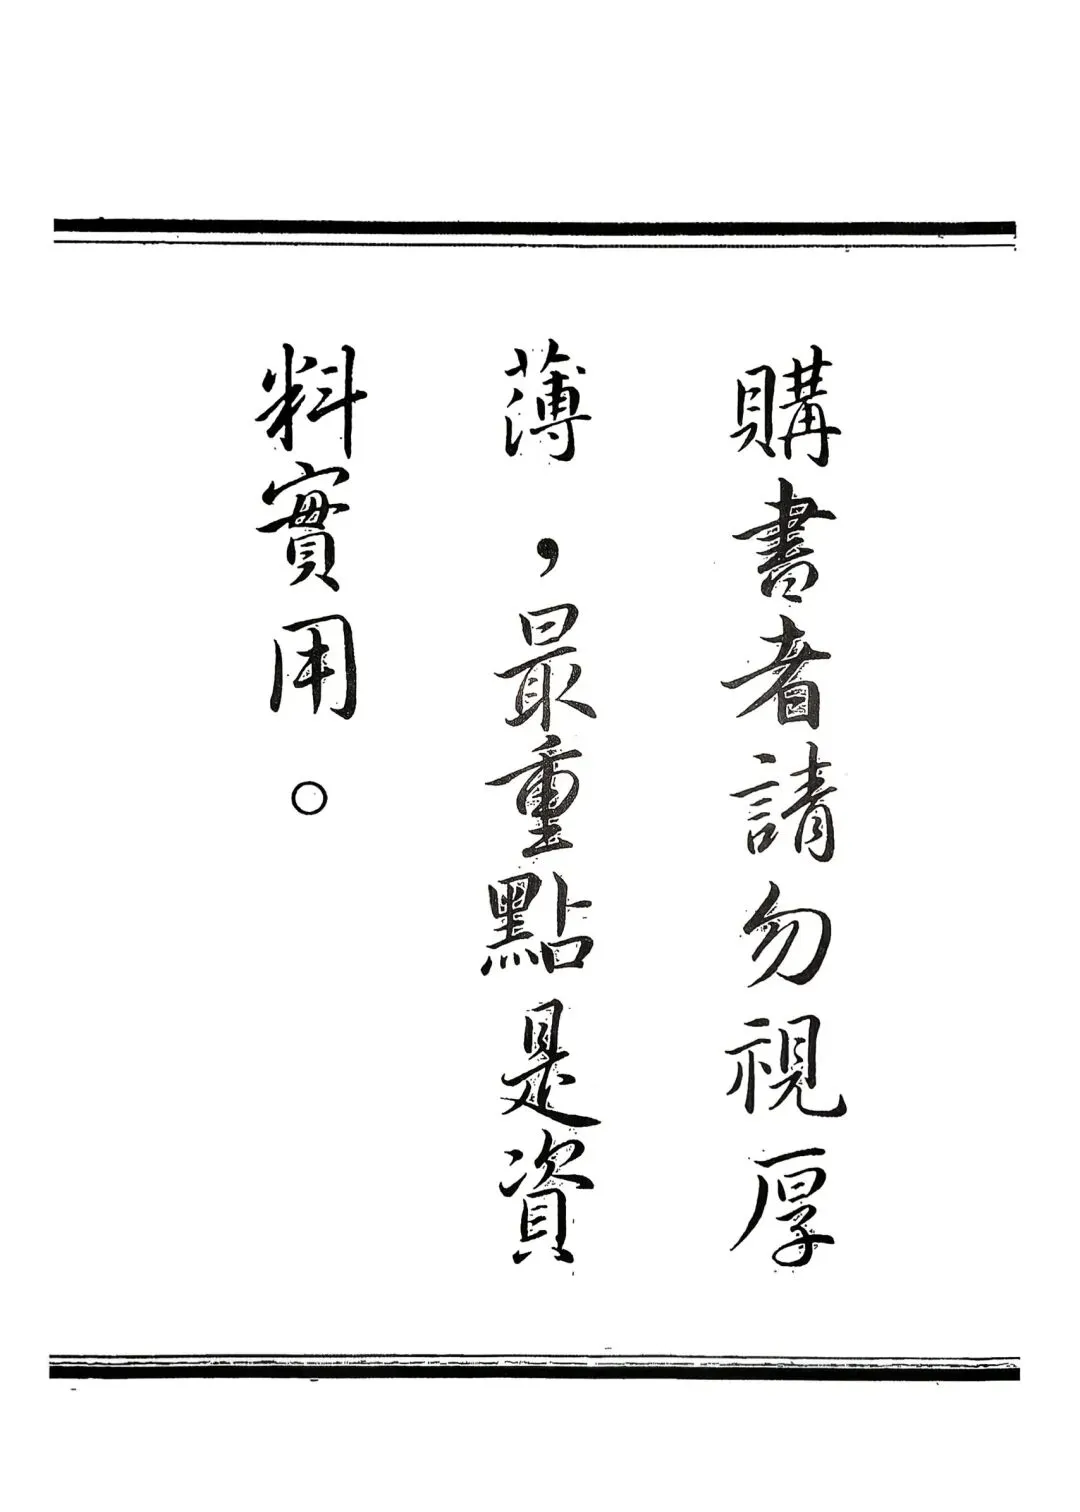 購書者請勿視厚
薄，最重點是資
料實用。